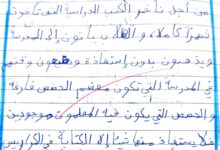 من أجل تأخر الكتب الدراسية التي تأخرت
شهرا كاملا، و الطلاب يأتون إلى المدرسة
ويذهبون بدون إستفادة و وقتهم
في المدرسة التي تكون معضم الحصص فارغة
و الحصص التي يكون فيه المعلمون موجودين
فلا يستفاد منها إلا الكتابة في الكراريس